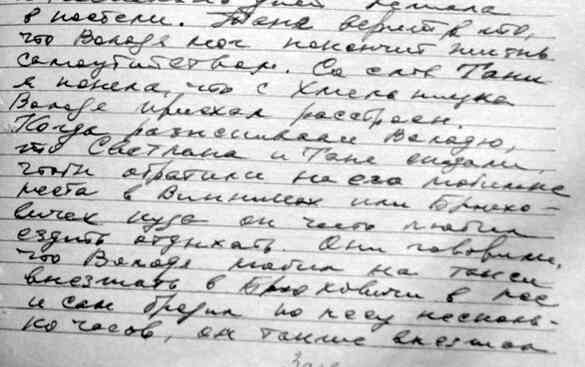 в постели. Таня верит в то,
что Володя мог покончить жизнь
самоубийством. Со слов Тани
я поняла, что с Хмельницка
Володя приехал расстроен.
Когда разыскивали Володю,
то Светлана и Таня сказали,
чтоби обратили на его любимые
места в Винниках или Брюхо-
вичах куда он часто любил
ездить отдыхать. Они говорили,
что Володя любил на такси
выезжать в Брюховичи в лес
и сам бродил по лесу несколь-
ко часов, он также выезжал